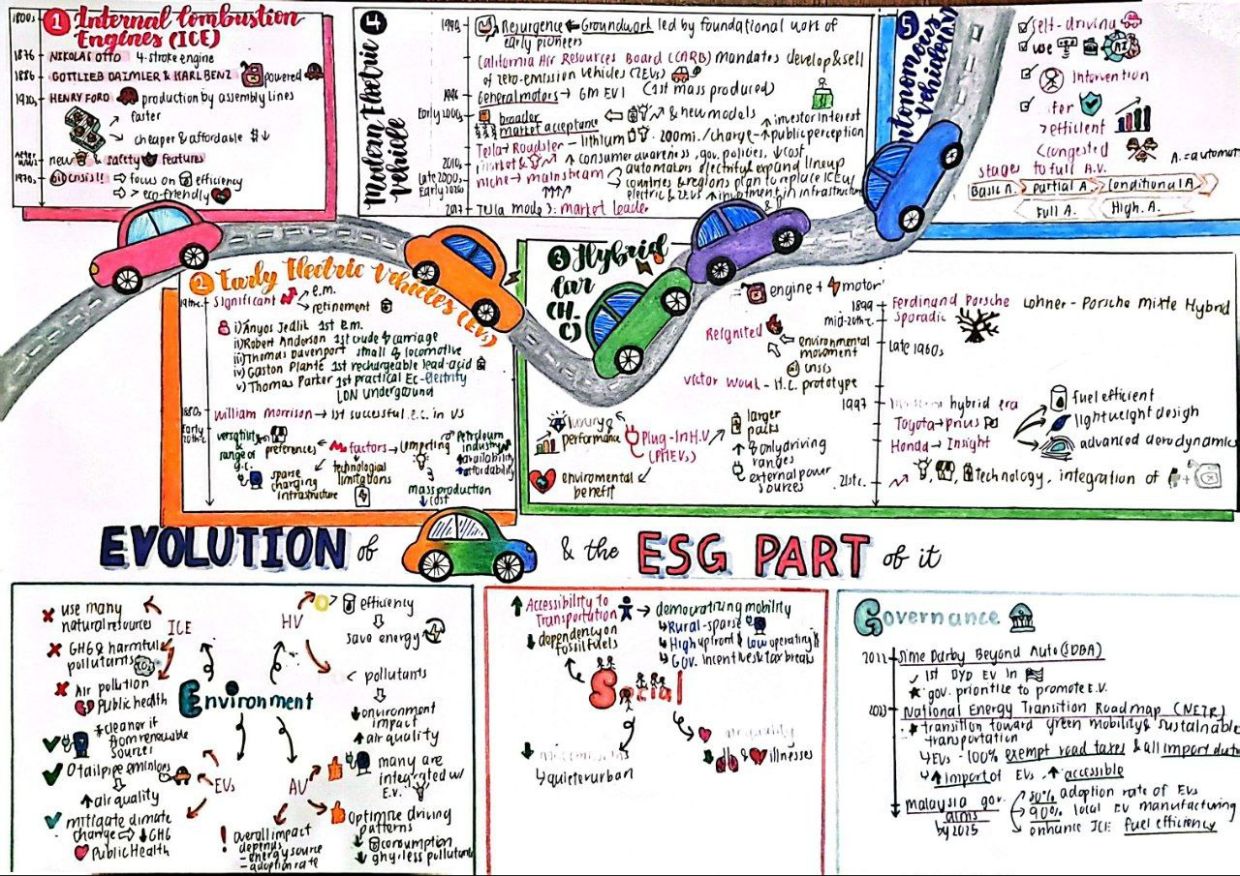 1 Internal Combustion
Engines (ICE)
1800s
1876 NIKOLAS OTTO 4-stroke engine
1886 GOTTLIEB DAIMLER & KARL BENZ powered
1910s HENRY FORD production by assembly lines
faster
cheaper & affordable $
new & safety features
1970s oil crisis!! focus on efficiency
> eco-friendly
4 Modern Electric
Vehicle
1990s Resurgence Groundwork led by foundational work of
early pioneers
California Air Resources Board (CARB) mandates develop & sell
of zero-emission vehicles (ZEVs)
1996 General motors → GM EV1 (1st mass produced)
Early 2000s broader
market acceptance
& new models
investor interest
Tesla → Roadster - lithium 200mi./charge - public perception
2010s
market & consumer awareness, gov. policies, cost
Late 2000s niche → mainstream
automakers electrify & expand lineup
Early 2020s
countries & regions plan to replace ICE w/
electric & ZEVs investment in infrastructure
2017 Tesla model 3: market leader
5 Autonomous
Vehicle (AV)
self-driving
use AI
Intervention
efficient
congested
stages to full A.V.
A. = automat
Basic A. Partial A. Conditional A.
Full A. High. A.
2 Early Electric Vehicles (EVs)
19th c. significant e.m.
refinement
i) Ányos Jedlik 1st e.m.
ii) Robert Anderson 1st crude carriage
iii) Thomas Davenport small locomotive
iv) Gaston Planté 1st rechargeable lead-acid
v) Thomas Parker 1st practical Ec-Electrity
LDN Underground
1880s William Morrison → 1st successful e.c. in US
Early
20th c.
versatility &
range of
g.c.
preferences
factors
competing
Petroleum
industry
availability
affordability
sparse
charging
infrastructure
technological
limitations
mass production
cost
3 Hybrid
Car
(H.
C)
engine + motor
1899 Ferdinand Porsche Lohner-Porsche Mixte Hybrid
mid-20th c. sporadic
Reignited
environmental
movement
crisis
Late 1960s
Victor Wouk - H.C. prototype
1997 hybrid era
Toyota → prius
Honda → Insight
fuel efficient
lightweight design
advanced aerodynamics
21st c. technology. integration of +
luxury &
performance
Plug-In H.V
(PHEVs)
enviromental
benefit
larger
packs
only driving
ranges
external power
sources
EVOLUTION of & the ESG PART of it
Environment
ICE
use many
natural resources
GHG & harmful
pollutants CO2
Air pollution
Public health
HV
efficiency
save energy
< pollutants
environment
impact
air quality
EVs
cleaner if
from renewable
sources
0 tailpipe emissions
air quality
mitigate climate
change → GHG
Public Health
AV
many are
integrated w/
E.V.
Optimize driving
patterns
consumption
ghg. less pollutants
! overall impact
depends
- energy source
- adoption rate
Social
Accessibility to
Transportation → democratizing mobility
Rural-sparse
High upfront & low operating $
Gov. incentives & tax breaks
dependency on
fossil fuels
quieter urban
air quality
& illnesses
Governance
2011 Sime Darby Beyond Auto (SDBA)
1st BYD EV in
gov. prioritize to promote E.V.
National Energy Transition Roadmap (NETR)
transition toward green mobility & sustainable
transportation
EVs - 100% exempt road taxes & all import dut
import of EVs, accessible
malaysia gov.
aims
by 2025
adoption rate of EVs
90% local EV manufacturing
enhance ICE fuel efficiency